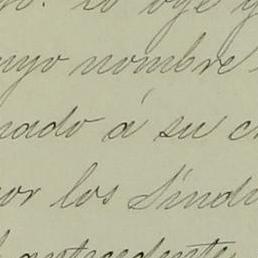 lo oye y
uyo nombre
nado á su c
or los Síndi
antecedente